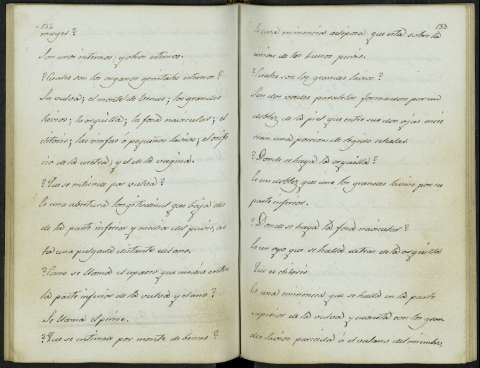 152
muger?
Son unos internos, y otros externos.
?Cuales son los organos genitales externos?
La vulva; el monte de Venus; los grandes
lavios; la orquilla; la fosa navicular; el
clitoris; las ninfas ó pequeños lavios; el orifi-
cio de la uretra, y el de la vagina.
?Que se entiende por vulva?
Es una abertura longitudinal que baja des
de la parte inferior y media del puvis, as
ta una pulgada distante del ano.
?Como se llama el espacio que media entre
la parte inferior de la vulva y el ano?
Se llama el perineo.
?Que se entiende por monte de Venus?
153
Es una eminencia adiposa, que está sobre la
union de los huesos puvis.
?Cuales son los grandes lavios?
Son dos vordes paralelos formados por un
doblez de la piel que entre sus dos ojas encie
rran una porcion de tejido celular.
?Donde se haya la orquilla?
Es un doblez que une los grandes lavios por su
parte inferior.
?Donde se haya la fosa navicular?
Es un oyo que se halla detras de la orquilla
?Que es clitoris
Es una eminencia que se halla en la parte
superior de la vulva y cuvierta con los gran
des lavios parecida á el valano del miembro